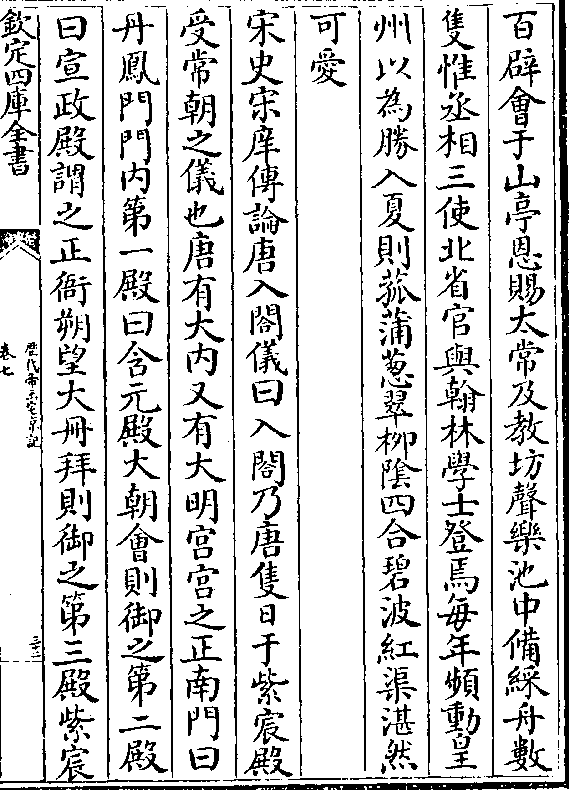 百辟會于山亭恩賜太常及教坊聲樂池中備綵舟數
隻惟丞相三使北省官與翰林學士登焉每年頻動皇
州以為勝入夏則菰蒲蔥翠栁陰四合碧波紅渠湛然
可愛
宋史宋庠傳論唐入閤儀曰入閤乃唐隻日于紫宸殿
受常朝之儀也唐有大内又有大明宫宫之正南門曰
丹鳳門門内第一殿曰含元殿大朝會則御之第二殿
曰宣政殿謂之正衙朔望大冊拜則御之第三殿紫宸
欽定四庫全書
歷代帝王宅京記
卷七
三十二